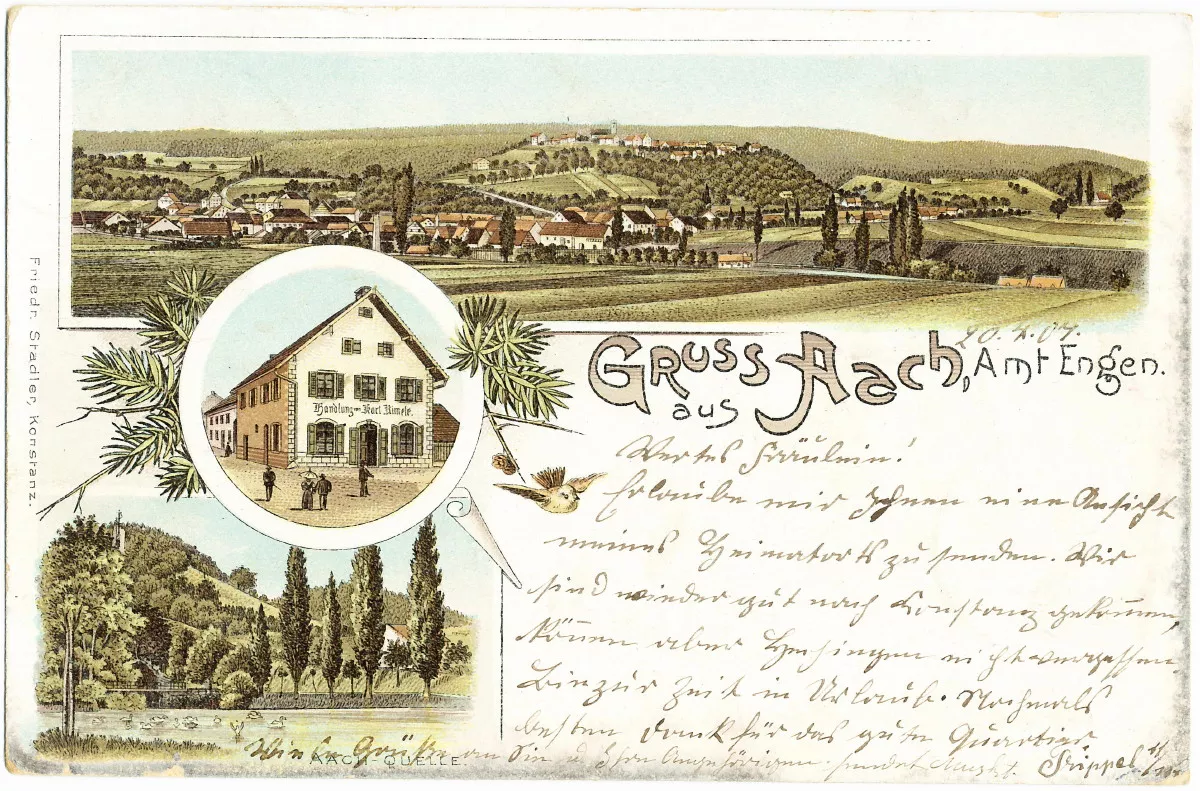 Friedr. Stadler, Konstanz.
Handlung von Karl Rimele.
GRUSS aus AACH, Amt Engen.
20. 4. 07.
Wertes Fräulein!
Erlaube mir Ihnen eine Ansicht
meines Heimatorts zu senden. Wir
sind wieder gut nach Konstanz gekommen,
können aber Hechingen nicht vergessen
Bin zur Zeit in Urlaub. Nochmals
besten Dank für das gute Quartier.
Viele Grüße an Sie u. Ihre Angehörigen sendet
AACH-QUELLE.